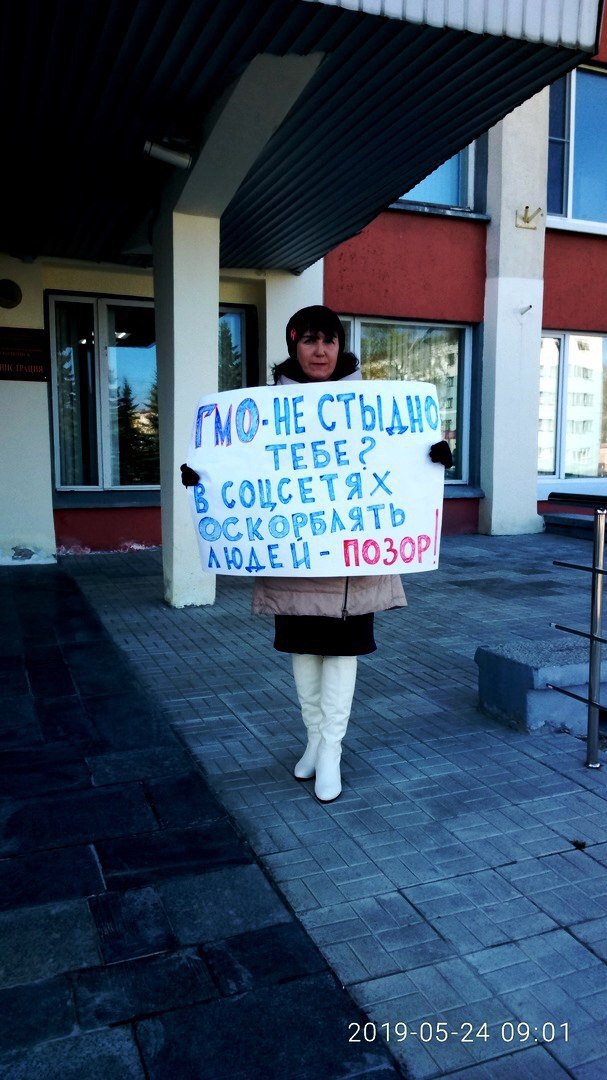 ГМО-НЕ СТЫДНО
ТЕБЕ?
В СОЦСЕТЯХ
ОСКОРБЛЯТЬ
ЛЮДЕЙ - ПОЗОР!
2019-05-24 09:01